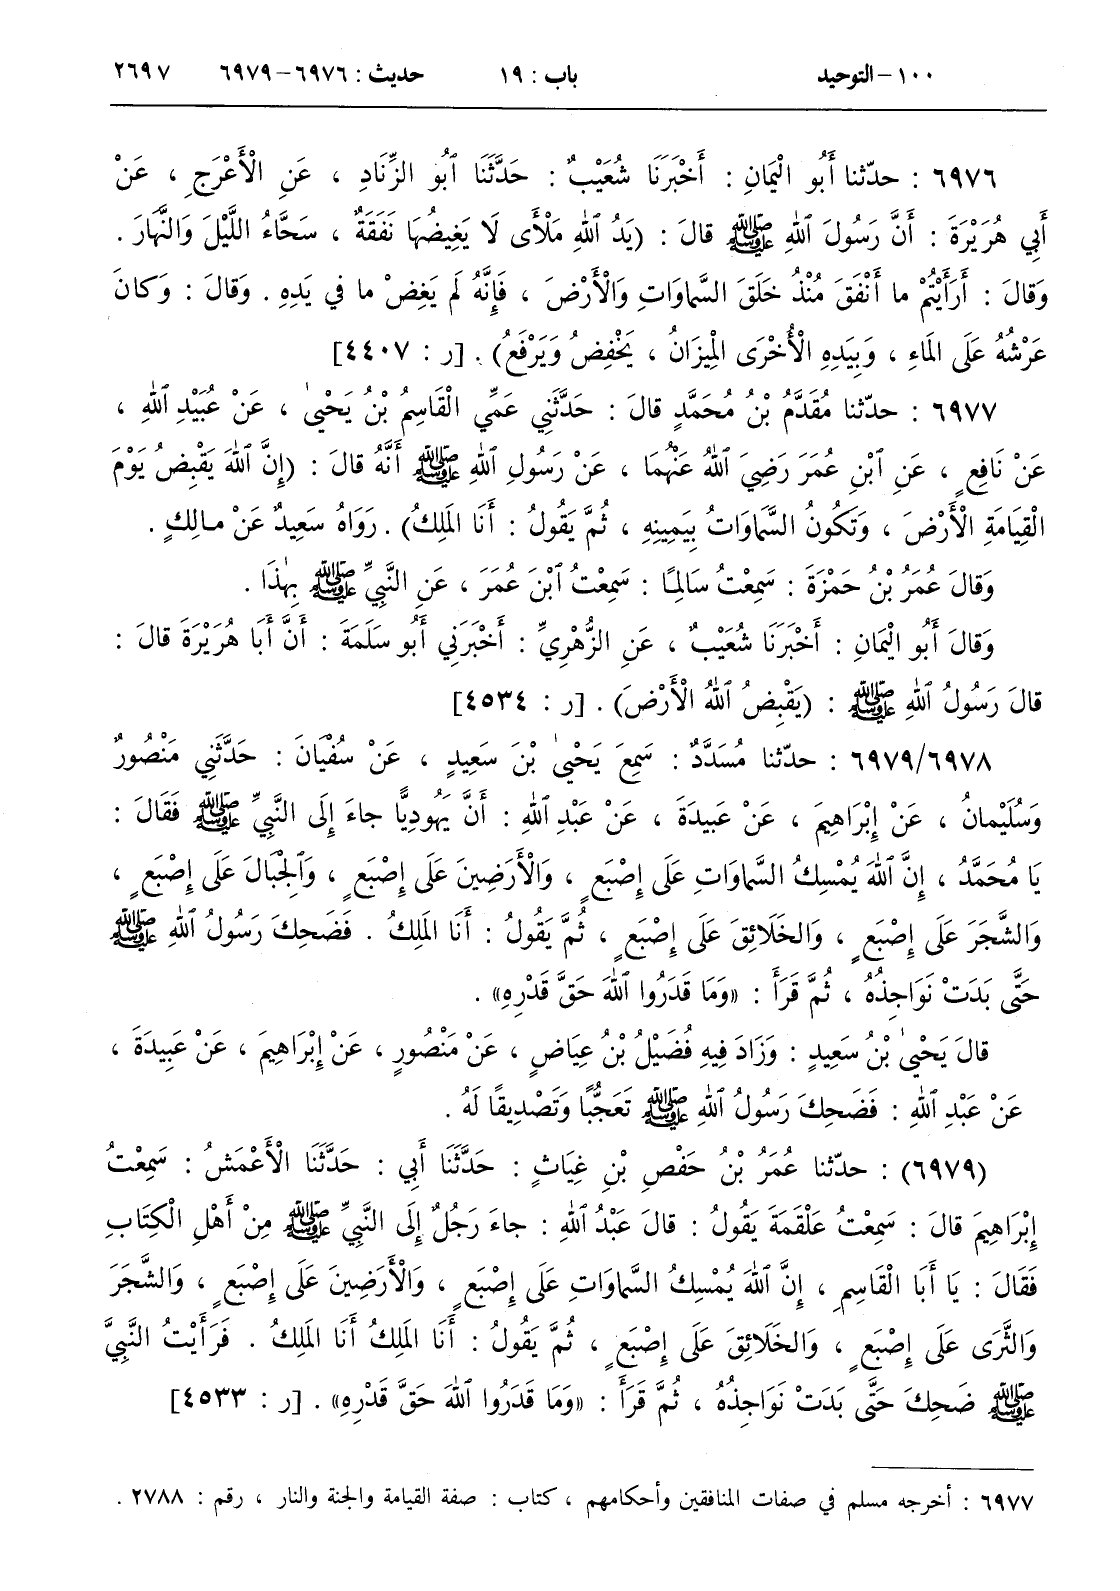 ١٠٠ – التوحيد باب : ١٩ حديث : ٦٩٧٦–٦٩٧٩ ٢٦٩٧
٦٩٧٦ : حدّثنا أَبُو الْيَمانِ : أَخْبَرَنَا شُعَيْبٌ : حَدَّثَنَا ٱبُو الزِّنَادِ ، عَنِ الْأَعْرَجِ ، عَنْ
أَبِي هُرَيْرَةَ : أَنَّ رَسُولَ ٱللهِ ﷺ قالَ : (يَدُ ٱللهِ مَلْأَى لَا يَغِيضُهَا نَفَقَةٌ ، سَحَّاءُ اللَّيْلَ وَالنَّهَارَ .
وَقالَ : أَرَأَيْتُمْ ما أَنْفَقَ مُنْذُ خَلَقَ السَّماوَاتِ وَالْأَرْضَ ، فَإِنَّهُ لَمْ يَغِضْ ما في يَدِهِ . وَقالَ : وَكانَ
عَرْشُهُ عَلَى المَاءِ ، وَبِيَدِهِ الْأُخْرَى الْمِيزَانُ ، يَخْفِضُ وَيَرْفَعُ) . [ر : ٤٤٠٧]
٦٩٧٧ : حدّثنا مُقَدَّمُ بْنُ مُحَمَّدٍ قالَ : حَدَّثَنِي عَمِّي الْقَاسِمُ بْنُ يَحْيىٰ ، عَنْ عُبَيْدِ ٱللهِ ،
عَنْ نَافِعٍ ، عَنِ ٱبْنِ عُمَرَ رَضِيَ ٱللهُ عَنْهُمَا ، عَنْ رَسُولِ ٱللهِ ﷺ أَنَّهُ قالَ : (إِنَّ ٱللهَ يَقْبِضُ يَوْمَ
الْقِيَامَةِ الْأَرْضَ ، وَتَكُونُ السَّمَاوَاتُ بِيَمِينِهِ ، ثُمَّ يَقُولُ : أَنَا المَلِكُ) . رَوَاهُ سَعِيدٌ عَنْ مالِكٍ .
وَقالَ عُمَرُ بْنُ حَمْزَةَ : سَمِعْتُ سَالِمًا : سَمِعْتُ ٱبْنَ عُمَرَ ، عَنِ النَّبِيِّ ﷺ بِهٰذَا .
وَقالَ أَبُو الْيَمانِ : أَخْبَرَنَا شُعَيْبٌ ، عَنِ الزُّهْرِيِّ : أَخْبَرَنِي أَبُو سَلَمَةَ : أَنَّ أَبَا هُرَيْرَةَ قالَ :
قالَ رَسُولُ ٱللهِ ﷺ : (يَقْبِضُ ٱللهُ الْأَرْضَ) . [ر : ٤٥٣٤]
٦٩٧٩/٦٩٧٨ : حدّثنا مُسَدَّدٌ : سَمِعَ يَحْيىٰ بْنَ سَعِيدٍ ، عَنْ سُفْيَانَ : حَدَّثَنِي مَنْصُورٌ
وَسُلَيْمانُ ، عَنْ إِبْرَاهِيمَ ، عَنْ عَبِيدَةَ ، عَنْ عَبْدِ ٱللهِ : أَنَّ يَهُودِيًّا جاءَ إِلَى النَّبِيِّ ﷺ فَقَالَ :
يَا مُحَمَّدُ ، إِنَّ ٱللهَ يُمْسِكُ السَّماوَاتِ عَلَى إِصْبَعٍ ، وَالْأَرَضِينَ عَلَى إِصْبَعٍ ، وَٱلْجِبَالَ عَلَى إِصْبَعٍ ،
وَالشَّجَرَ عَلَى إِصْبَعٍ ، وَالخَلَائِقَ عَلَى إِصْبَعٍ ، ثُمَّ يَقُولُ : أَنَا المَلِكُ . فَضَحِكَ رَسُولُ ٱللهِ ﷺ
حَتَّى بَدَتْ نَوَاجِذُهُ ، ثُمَّ قَرَأَ : «وَمَا قَدَرُوا ٱللهَ حَقَّ قَدْرِهِ» .
قالَ يَحْيىٰ بْنُ سَعِيدٍ : وَزَادَ فِيهِ فُضَيْلُ بْنُ عِيَاضٍ ، عَنْ مَنْصُورٍ ، عَنْ إِبْرَاهِيمَ ، عَنْ عَبِيدَةَ ،
عَنْ عَبْدِ ٱللهِ : فَضَحِكَ رَسُولُ ٱللهِ ﷺ تَعَجُّبًا وَتَصْدِيقًا لَهُ .
(٦٩٧٩) : حدّثنا عُمَرُ بْنُ حَفْصِ بْنِ غِيَاثٍ : حَدَّثَنَا أَبِي : حَدَّثَنَا الْأَعْمَشُ : سَمِعْتُ
إِبْرَاهِيمَ قالَ : سَمِعْتُ عَلْقَمَةَ يَقُولُ : قالَ عَبْدُ ٱللهِ : جاءَ رَجُلٌ إِلَى النَّبِيِّ ﷺ مِنْ أَهْلِ الْكِتَابِ
فَقَالَ : يَا أَبَا الْقَاسِمِ ، إِنَّ ٱللهَ يُمْسِكُ السَّماوَاتِ عَلَى إِصْبَعٍ ، وَالْأَرَضِينَ عَلَى إِصْبَعٍ ، وَالشَّجَرَ
وَالثَّرَى عَلَى إِصْبَعٍ ، وَالخَلَائِقَ عَلَى إِصْبَعٍ ، ثُمَّ يَقُولُ : أَنَا المَلِكُ أَنَا المَلِكُ . فَرَأَيْتُ النَّبِيَّ
ﷺ ضَحِكَ حَتَّى بَدَتْ نَوَاجِذُهُ ، ثُمَّ قَرَأَ : «وَمَا قَدَرُوا ٱللهَ حَقَّ قَدْرِهِ» . [ر : ٤٥٣٣]
٦٩٧٧ : أخرجه مسلم في صفات المنافقين وأحكامهم ، كتاب : صفة القيامة والجنة والنار ، رقم : ٢٧٨٨ .